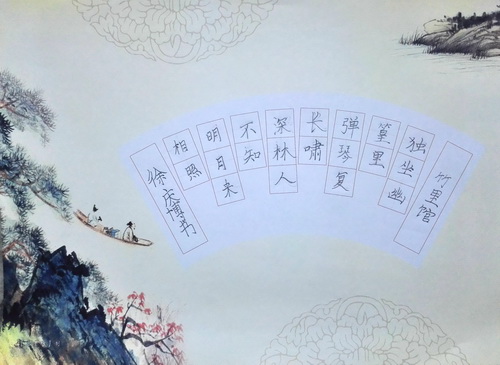 竹里馆
独坐幽
篁里
弹琴复
长啸
深林人
不知
明月来
相照
徐庆博书